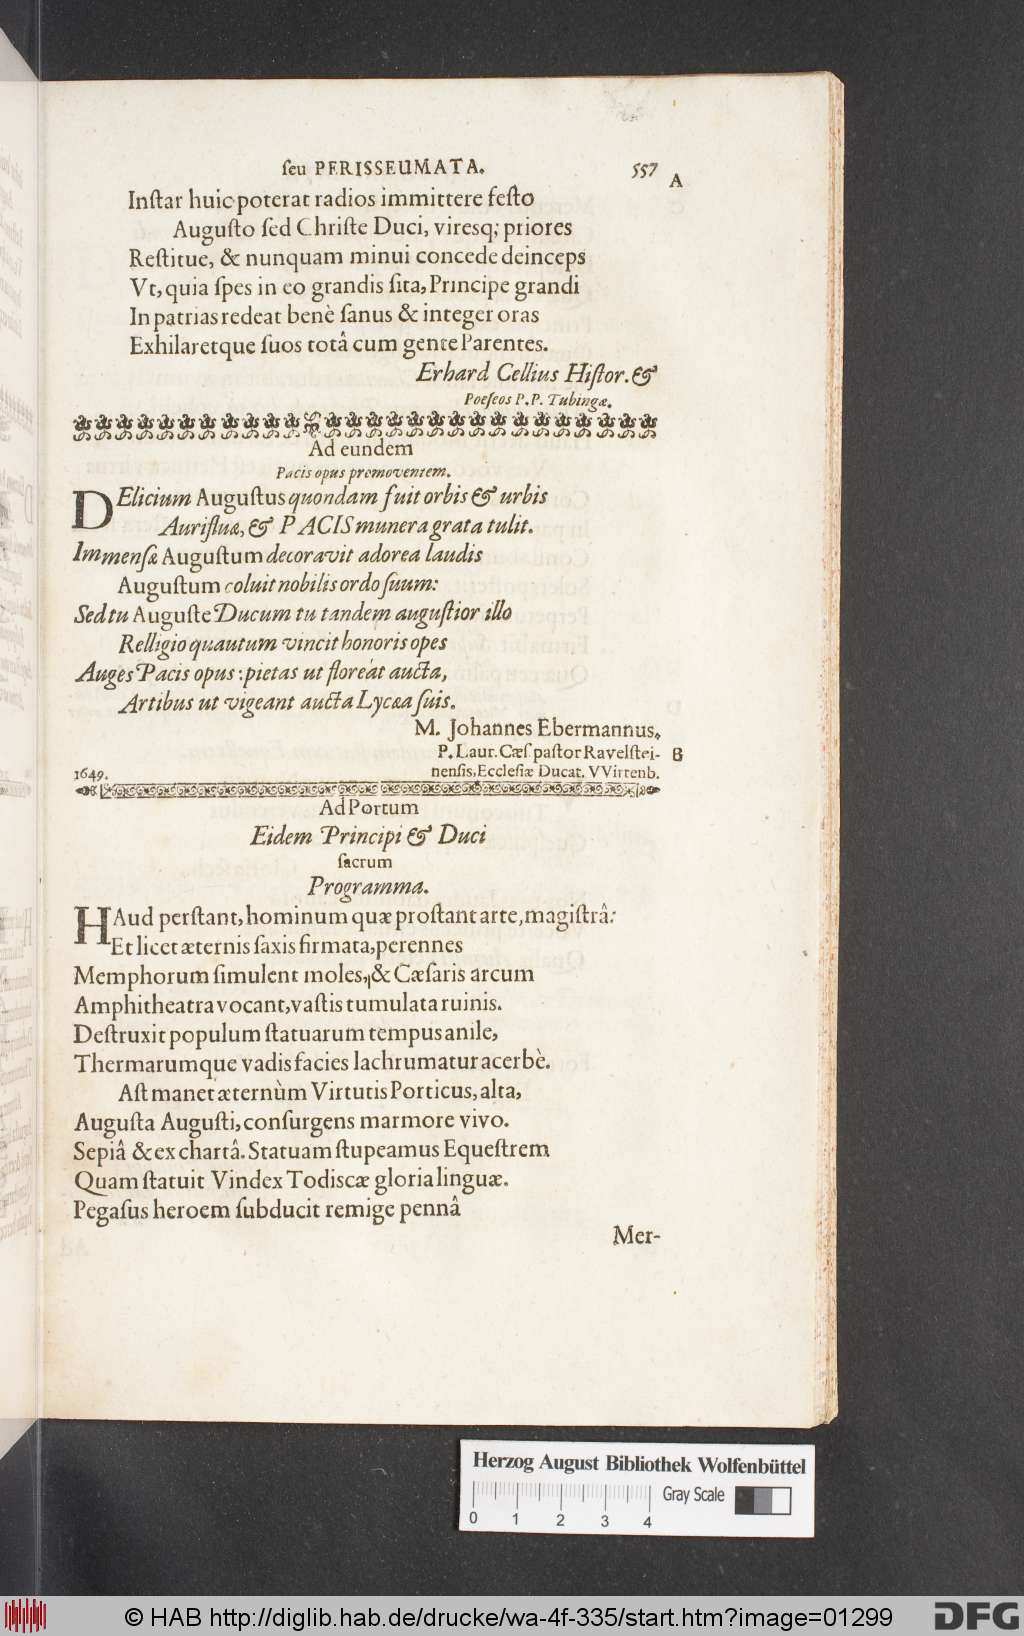 ſeu PERISSEUMATA. 557
A
Inſtar huic poterat radios immittere feſto
Auguſto ſed Chriſte Duci, viresq; priores
Reſtitue, & nunquam minui concede deinceps
Vt, quia ſpes in eo grandis ſita, Principe grandi
In patrias redeat benè ſanus & integer oras
Exhilaretque ſuos totâ cum gente Parentes.
Erhard Cellius Hiſtor. &
Poeſeos P. P. Tubingæ.
Ad eundem
Pacis opus promoventem.
DElicium Auguſtus quondam fuit orbis & urbis
Aurifluæ, & PACIS munera grata tulit.
Immenſæ Auguſtum decoravit adorea laudis
Auguſtum coluit nobilis ordo ſuum:
Sed tu Auguſte Ducum tu tandem auguſtior illo
Relligio quautum vincit honoris opes
Auges Pacis opus: pietas ut floreat aucta,
Artibus ut vigeant aucta Lycæa ſuis.
M. Johannes Ebermannus,
P. Laur. Cæſ. paſtor Ravelſtei- B
1649. nenſis, Eccleſiæ Ducat. VVirtenb.
Ad Portum
Eidem Principi & Duci
ſacrum
Programma.
HAud perſtant, hominum quæ proſtant arte, magiſtrâ:
Et licet æternis ſaxis firmata, perennes
Memphorum ſimulent moles, & Cæſaris arcum
Amphitheatra vocant, vaſtis tumulata ruinis.
Deſtruxit populum ſtatuarum tempus anile,
Thermarumque vadis facies lachrumatur acerbè.
Aſt manet æternùm Virtutis Porticus, alta,
Auguſta Auguſti, conſurgens marmore vivo.
Sepiâ & ex chartâ. Statuam ſtupeamus Equeſtrem
Quam ſtatuit Vindex Todiscæ gloria linguæ.
Pegaſus heroem ſubducit remige pennâ
Mer-
Herzog August Bibliothek Wolfenbüttel
Gray Scale
0 1 2 3 4
© HAB http://diglib.hab.de/drucke/wa-4f-335/start.htm?image=01299
DFG